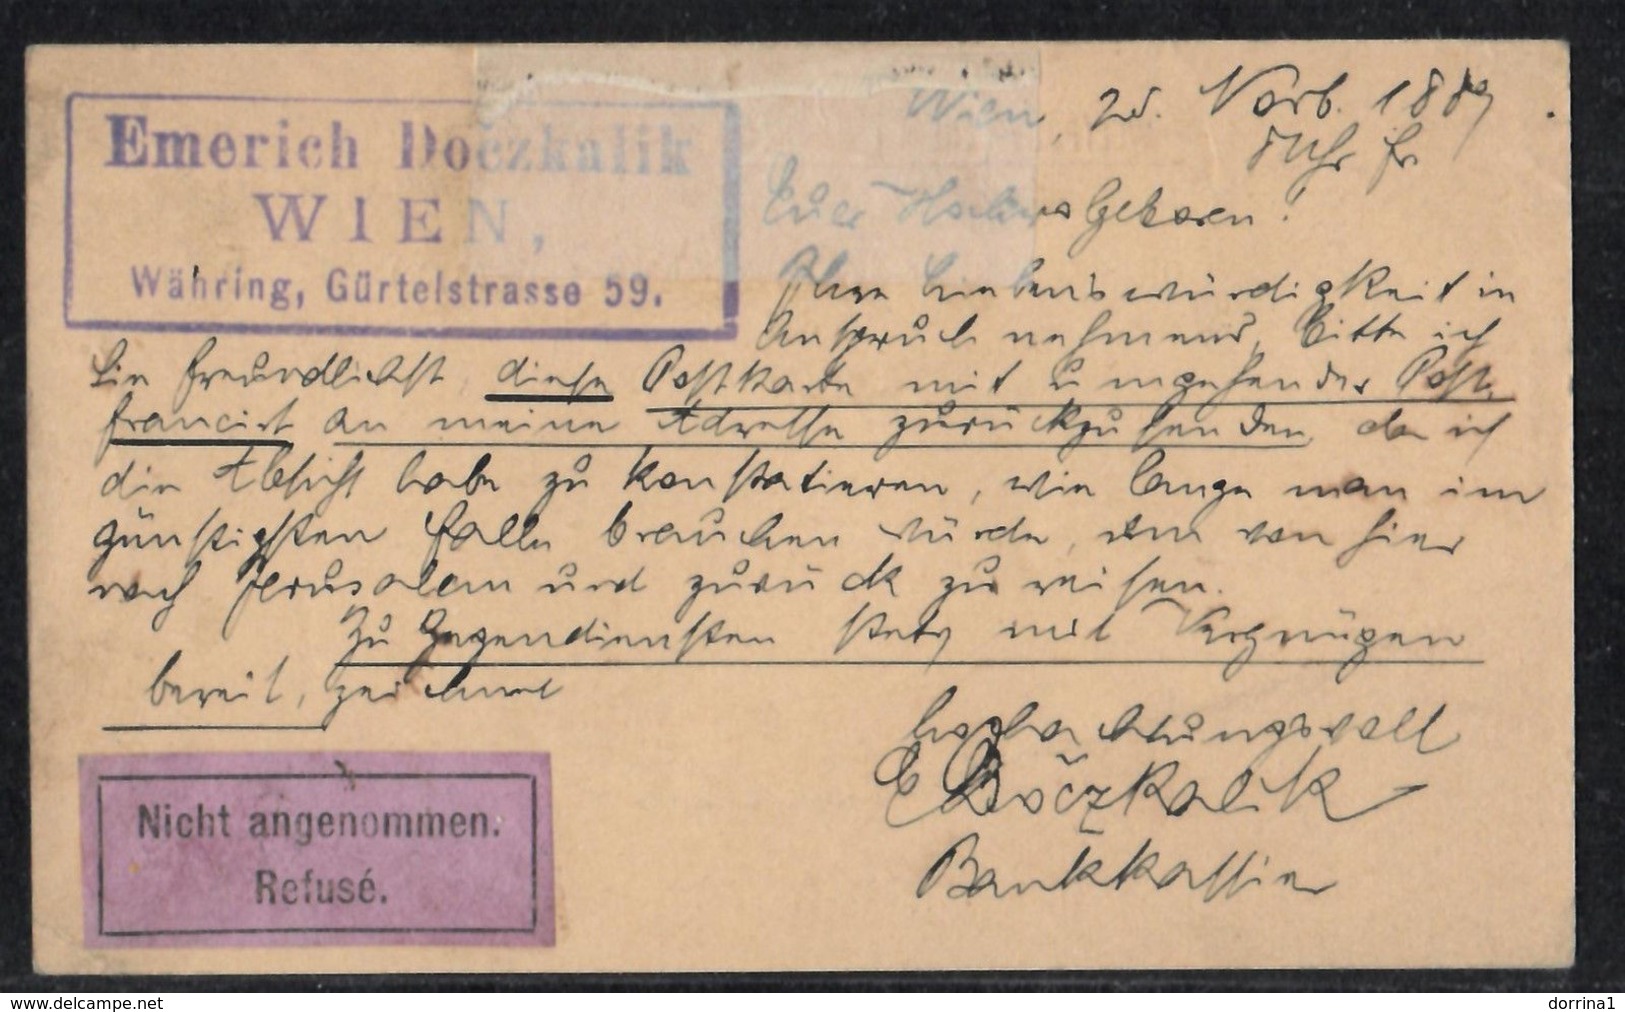 Emerich Doczkalik
WIEN,
Währing, Gürtelstrasse 59.
Wien, 25. Novb. 1889
8 Uhr fr.
Euer Hochwolgeboren!
Ihre Liebenswürdigkeit in
Anspruch nehmend, bitte ich
Sie freundlichst, diese Postkarte mit umgehender Post
francirt an meine Adresse zurückzusenden, da ich
die Absicht habe zu konstatieren, wie lange man im
günstigsten Falle brauchen würde, um von hier
nach Jerusalem und zurück zu reisen.
Zu Gegendiensten stets mit Vergnügen
bereit, zeichnet
hochachtungsvoll
E Dočzkalik
Bankkassier
Nicht angenommen.
Refusé.
www.delcampe.net
dorrina1